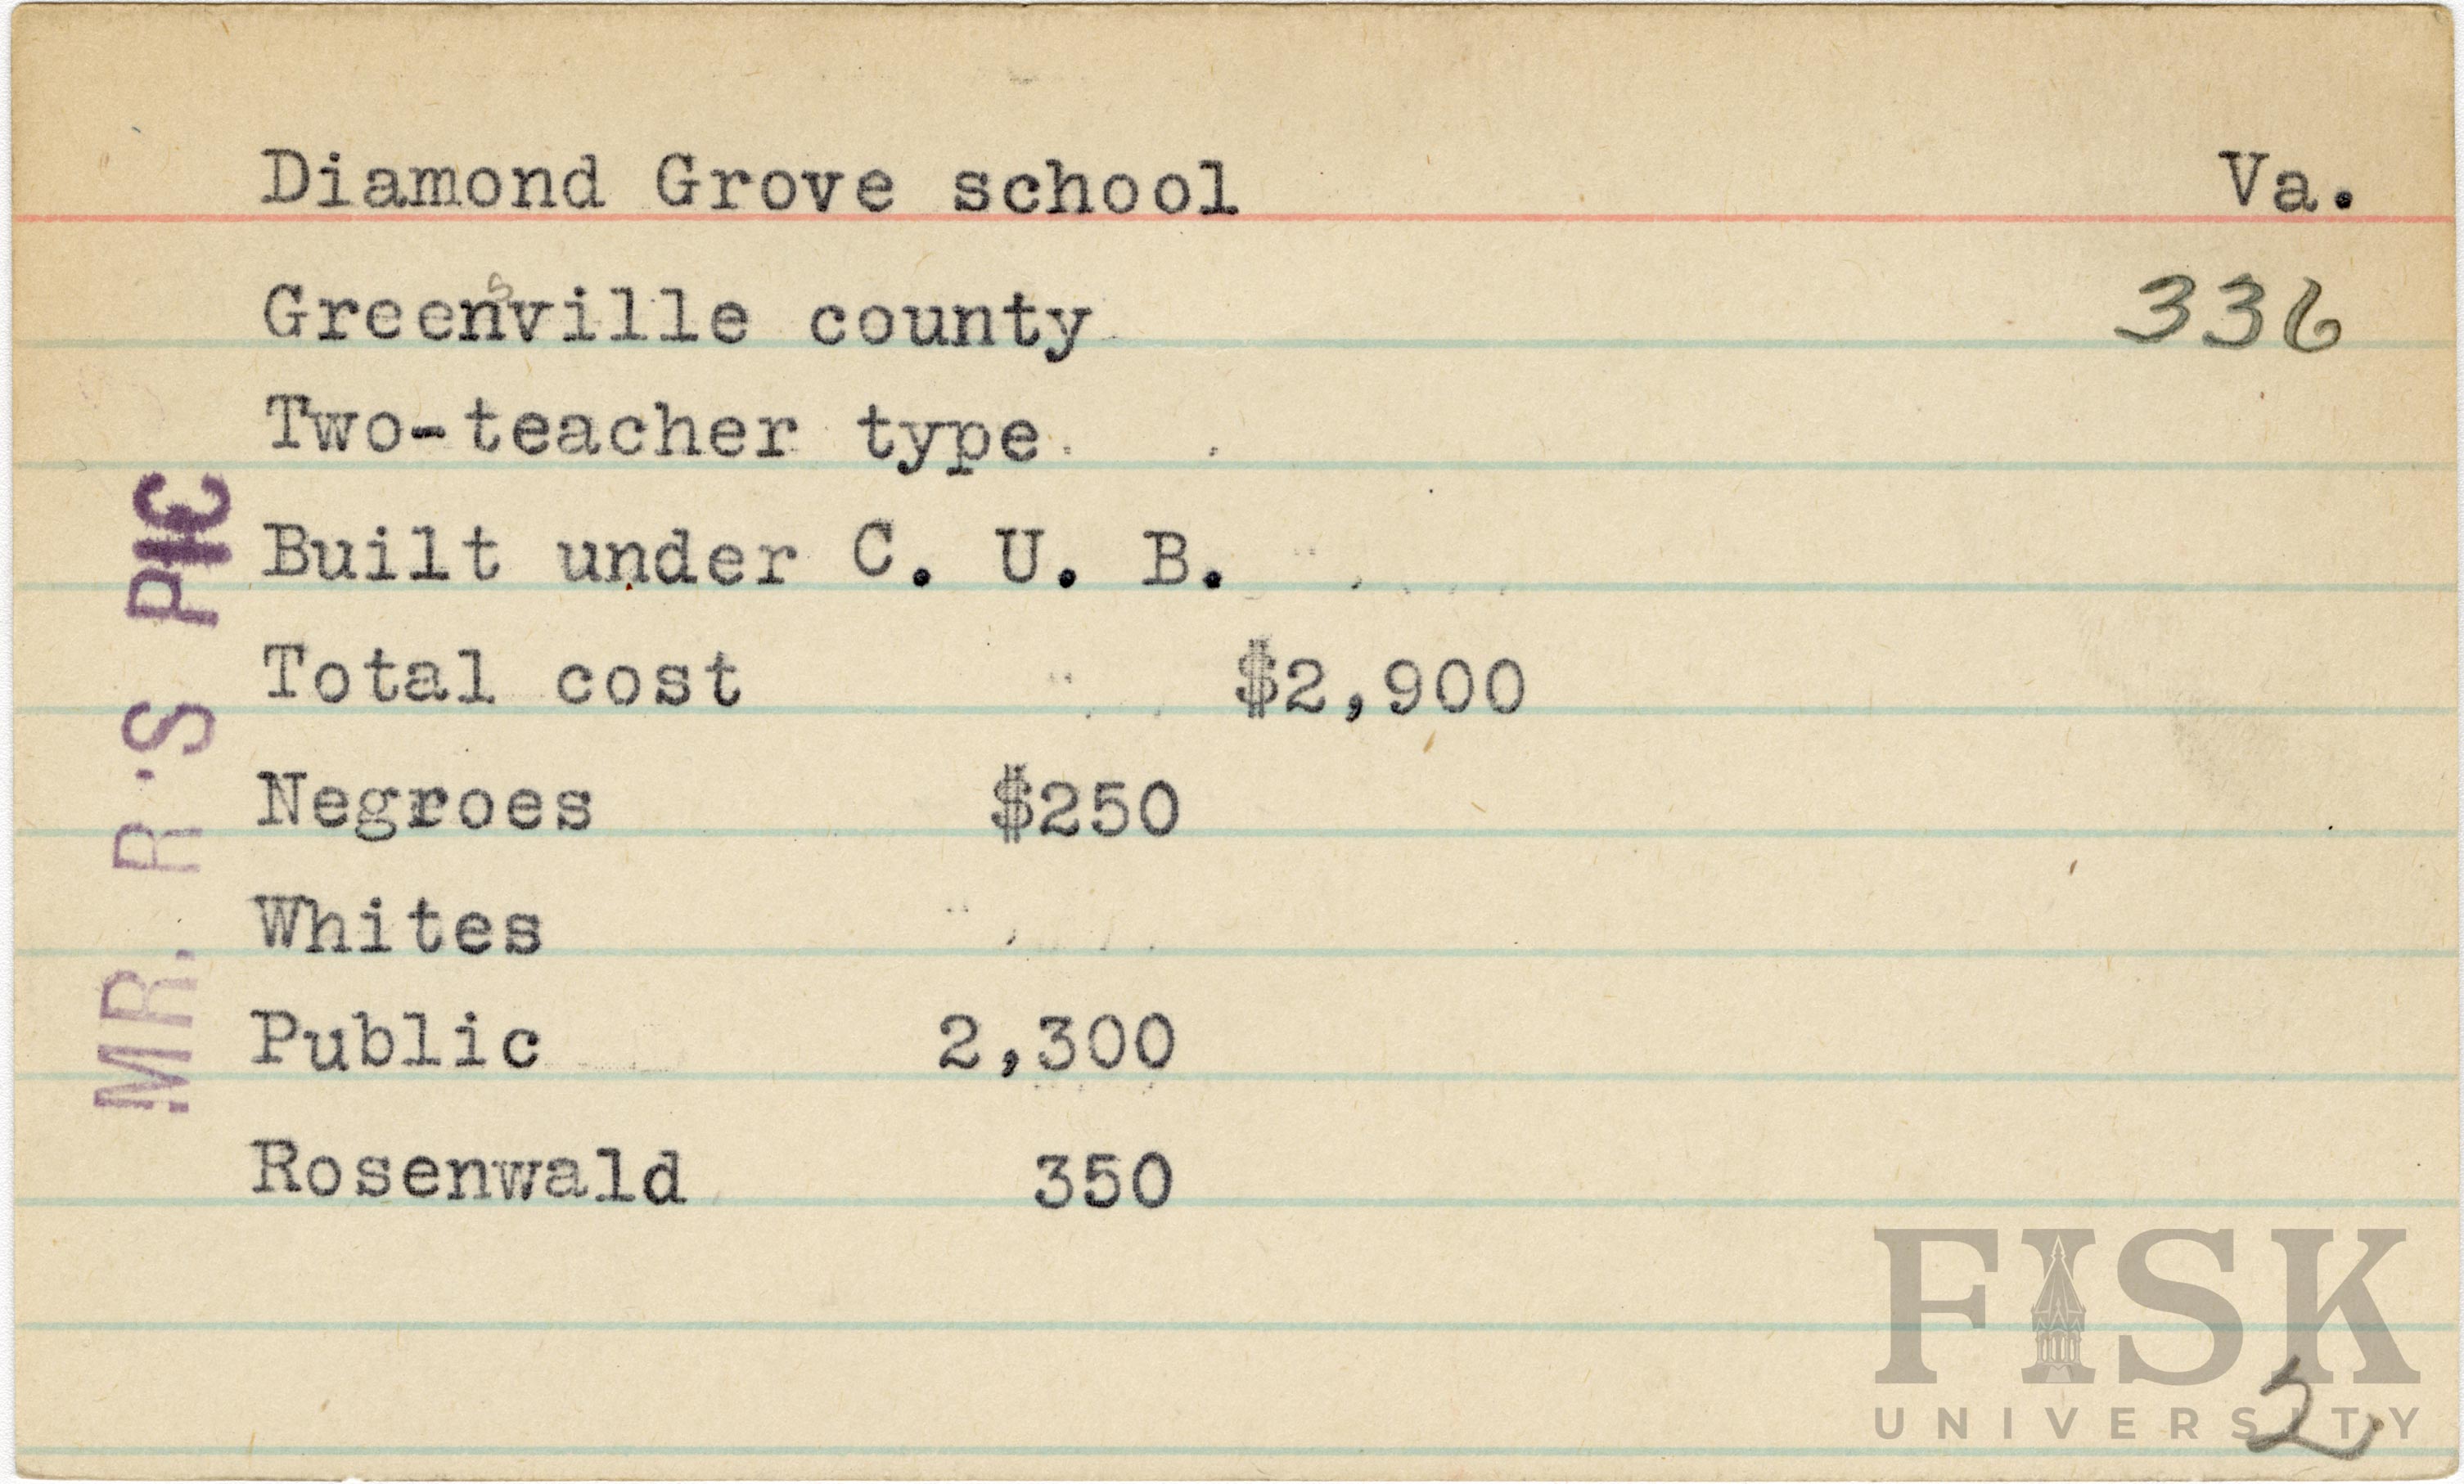 Diamond Grove school Va.
Greensville county 336
Two-teacher type
Built under C. U. B.
Total cost $2,900
Negroes $250
Whites
Public 2,300
Rosenwald 350
MR. R'S PIC
FISK
UNIVERSITY
2